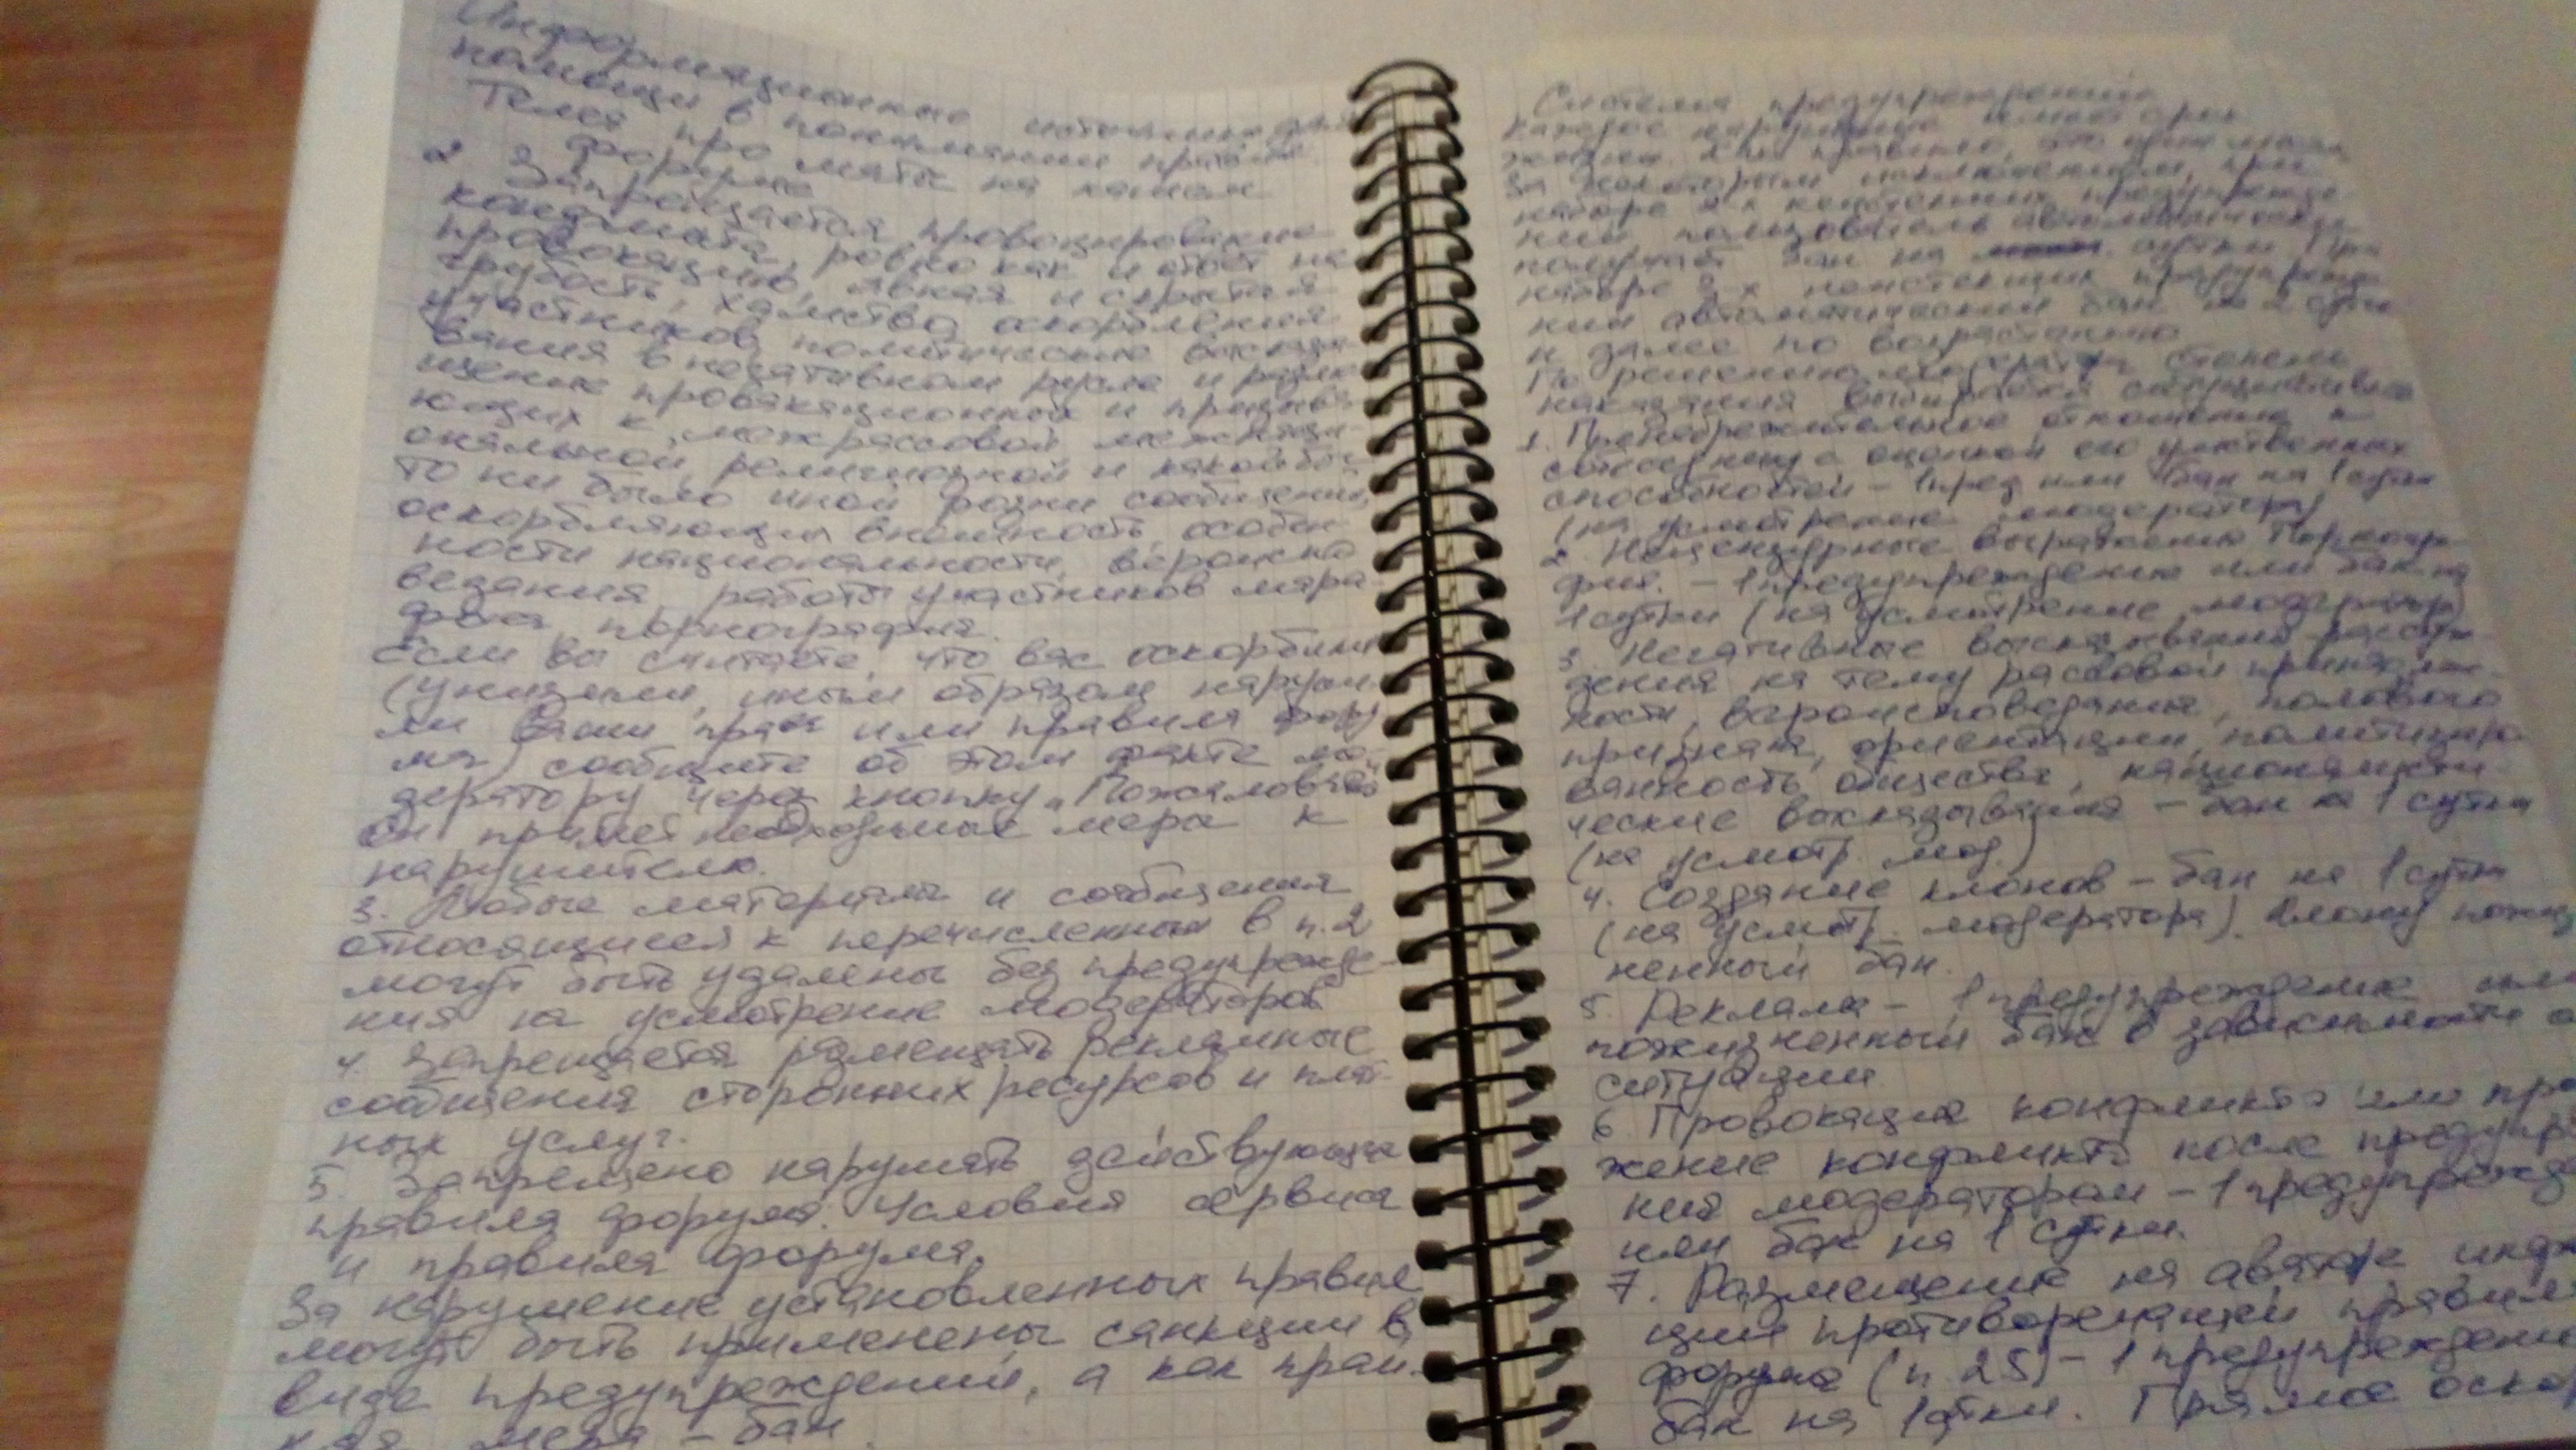 Информационные источники для
помощи в понимании правил
Тема про маты на нашем
форуме
2 Запрещается провоцирование
конфликта, ровно как и ответ на
провокацию, явная и скрытая
грубость, хамство, оскорбления
участников, политические выска
вания в негативном русле и разме
щение провокационных и призыва
ющих к межрассовой, межнаци
ональной, религиозной и какой бы
то ни было иной розни сообщений,
оскорбляющих внешность, особен
ности национальности, вероиспо
ведания, работы участников мара
фона, порнография.
Если вы считаете, что вас оскорбили
(унизили, иным образом наруши
ли Ваши права или правила фору
ма) сообщите об этом факте мо
дератору через кнопку „Пожаловаться
Он примет необходимые меры к
нарушителю.
3. Любые материалы и сообщения
относящиеся к перечисленным в п. 2
могут быть удалены без предупрежде-
ния на усмотрение модераторов
4 Запрещается размещать рекламные
сообщения сторонних ресурсов и плат
ных услуг.
5. Запрещено нарушать действующие
правила форума. Условия сервиса
и правила форума.
За нарушение установленных правил
могут быть применены санкции в
виде предупреждений, а как край-
няя мера - бан.
Система предупреждений
Каждое нарушение имеет срок
жизни. Как правило, это один месяц
За некоторым исключением, при
наборе 2-х неистекших предупрежде
ний пользователь автоматически
получает бан на сутки При
наборе 3-х неистекших предупрежде
ний автоматический бан на 2 суток
и далее по возрастанию
По решению модератора степень
наказания выбирается
1. Пренебрежительное отношение к
собеседнику с оценкой его умственных
способностей - 1 пред или бан на 1 сутки
(на усмотрение модератора)
2. Нецензурные выражения Порногра
фия. - 1 предупреждение или бан на
1 сутки (на усмотрение модератора)
3. Негативные высказывания рассуж
дения на тему рассовой принадлеж
ности, вероисповедания, полового
признака, ориентации, политизиро
ванность общества, националисти
ческие выссказывания - бан на 1 сутки
(на усмотр. мод.)
4. Создание клонов - бан на 1 сутки
(на усмотр. модератора). Клону пожиз
ненный бан.
5. Реклама - 1 предупреждение или
пожизненный бан в зависимости о
ситуации
6 Провокация конфликта или про
жение конфликта после предупр
ния модератором - 1 предупрежд
или бан на 1 сутки.
7. Размещение на аватаре инфо
ции противоречащей правил
форума (п. 2.5) - 1 предупреждени
бан на 1 сутки. Прямое оскор